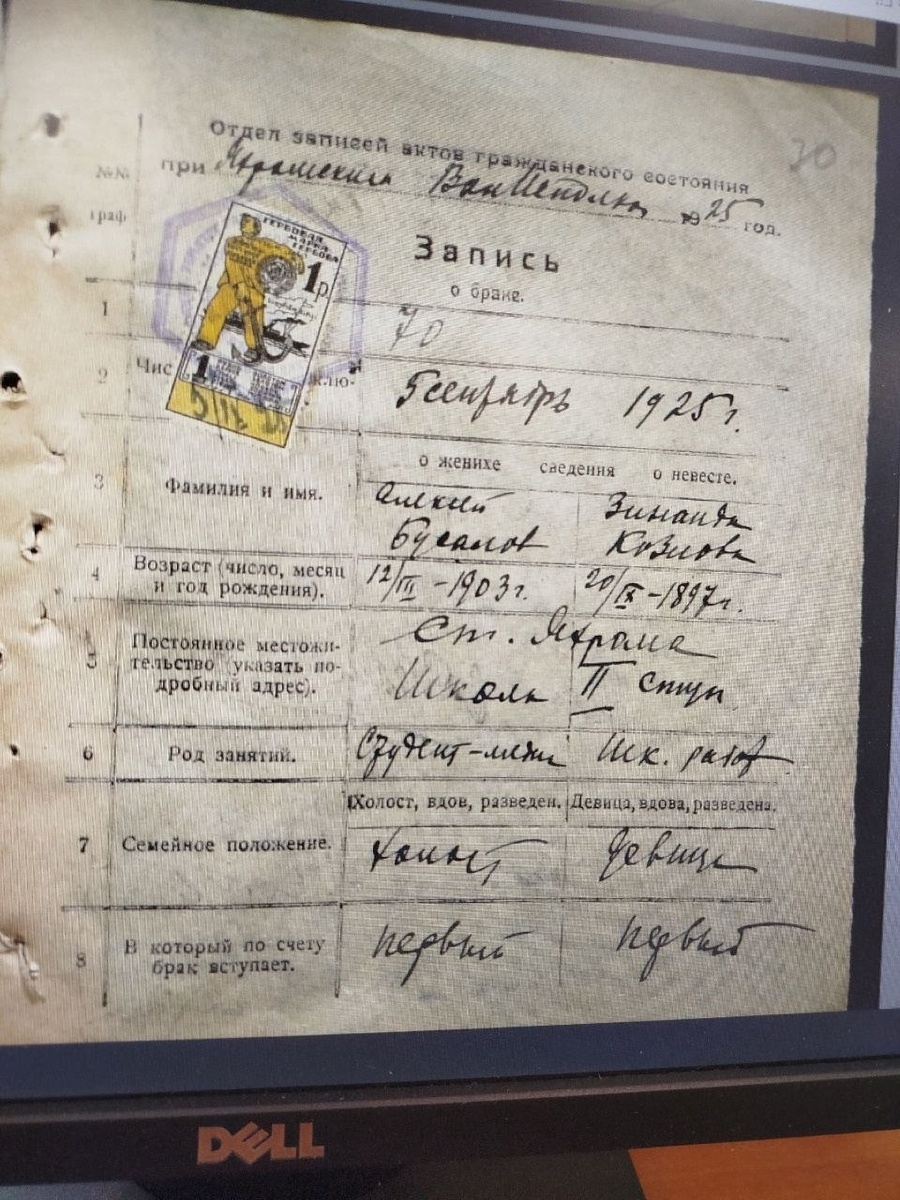 30
Отдел записей актов гражданского состояния
№№ граф
при Яхромском ВолИсполк 1925 год.
ГЕРБОВАЯ
МАРКА
1 р.
1
Запись
о браке.
1 70
2 Чис клю- 5 сентябрь 1925 г.
о женихе сведения о невесте.
3 Фамилия и имя. Алексей Зинаида
Бусалов Козлова
4 Возраст (число, месяц 12/III - 1903 г. 20/IX - 1897 г.
и год рождения).
5 Постоянное местожи- Ст. Яхрома
тельство (указать по- Школа II ступ
дробный адрес).
6 Род занятий. Студент- Шк. работ
Холост, вдов, разведен. Девица, вдова, разведена.
7 Семейное положение. холост девица
8 В который по счету первый первый
брак вступает.
DELL